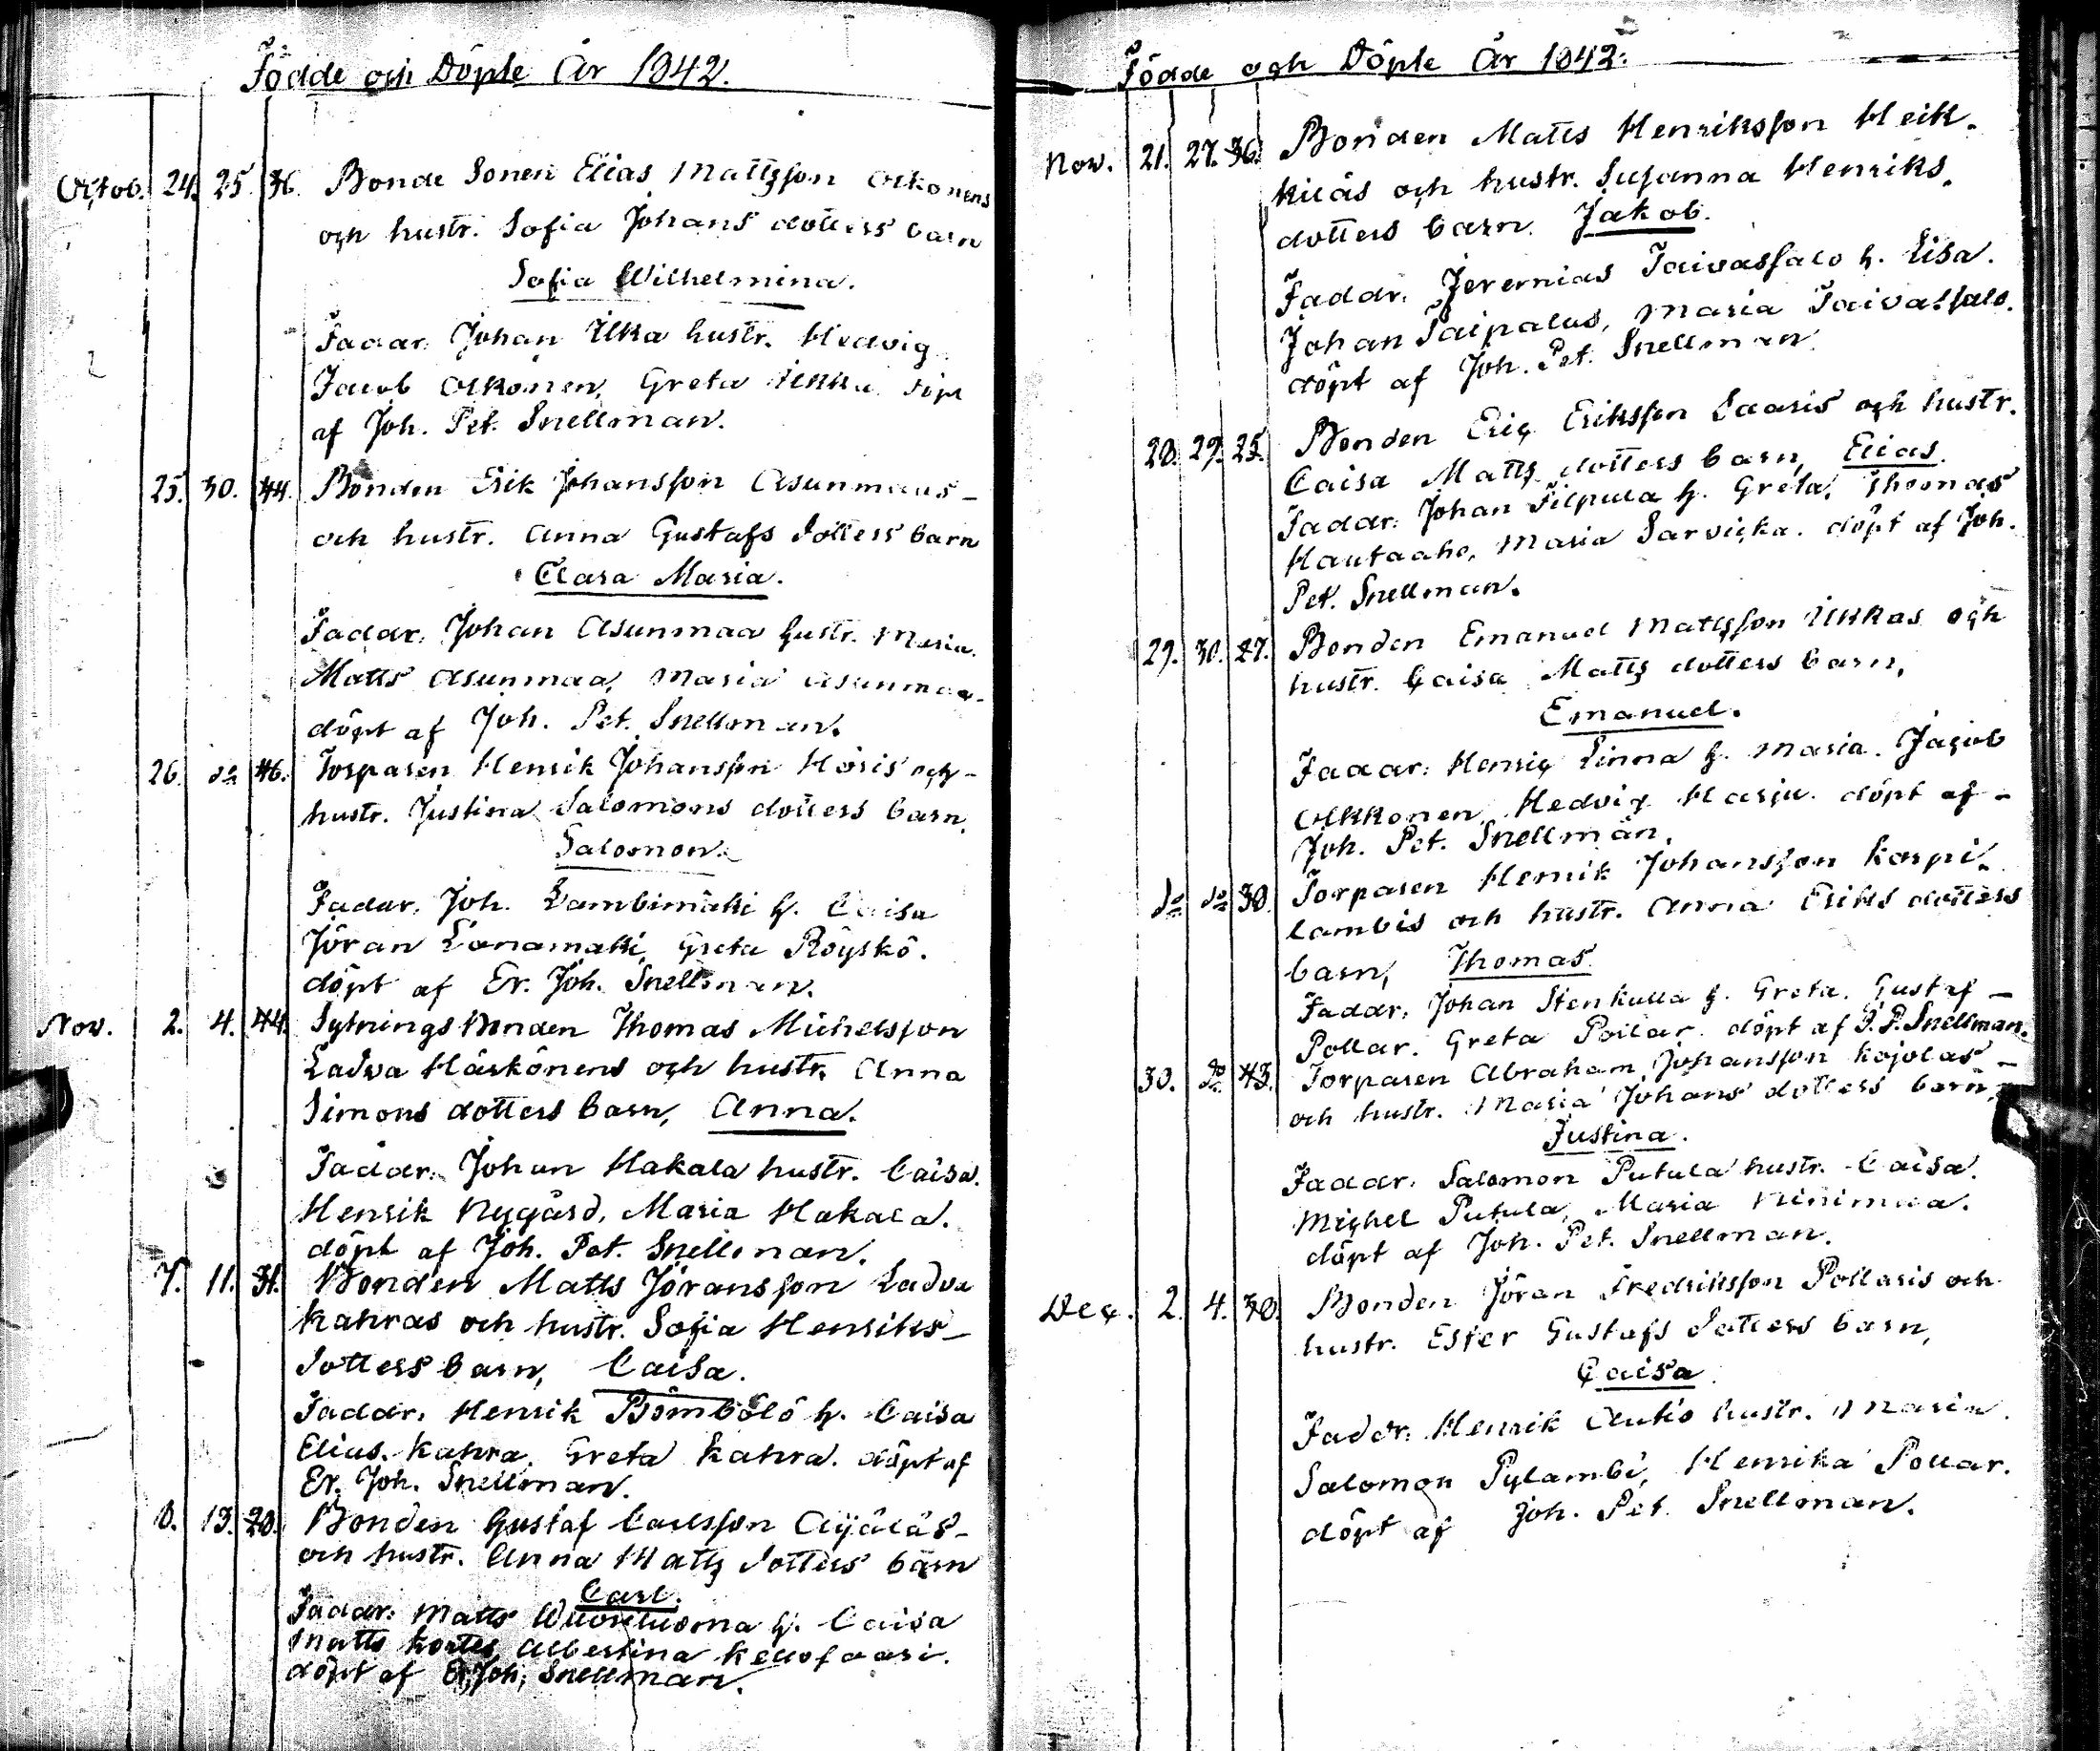 Födde och Döpte År 1842.
Octob. 24. 25. 36. Bonde Sonen Elias Mattsson Olkonens
och hustr. Sofia Johans dotters barn
Sofia Wilhelmina.
Faddr. Johan Ilka hustr. Hedvig
Jacob Olkonen, Greta Ilkka döpt
af Joh. Pet. Snellman.
25. 30. 44. Bonden Erik Johansson Asunmaas
och hustr. Anna Gustafs dotters barn
Clara Maria.
Faddr. Johan Asunmaa hustr. Maria.
Matts Asunmaa, Maria Asunmaa.
döpt af Joh. Pet. Snellman.
26. do 46. Torparen Henrik Johansson Höris och
hustr. Justina Salomons dotters barn.
Salomon.
Faddr. Joh. Lambimäki h. Caisa
Jöran Lanamäki, Greta Röyskö.
döpt af Er. Joh. Snellman.
Nov. 2. 4. 44. Sytnings Bonden Thomas Michelsson
Ladva Härkönens och hustr. Anna
Simons dotters barn, Anna.
Faddr. Johan Hakala hustr. Caisa.
Henrik Nygård, Maria Hakala.
döpt af Joh. Pet. Snellman.
7. 11. 31. Bonden Matts Jöransson Ladva
Kahras och hustr. Sofia Henriks
dotters barn, Caisa.
Faddr. Henrik Bömbölö h. Caisa
Elias Kahra, Greta Kahra. döpt af
Er. Joh. Snellman.
8. 13. 28. Bonden Gustaf Carlsson Äijäläs
och hustr. Anna Matts dotters barn
Carl.
Faddr. Matts Wuorluoma h. Caisa
Matts Kortes Albertina Kellosaari.
döpt af Er. Joh. Snellman.
Födde och Döpte År 1842.
Nov. 21. 27. 36. Bonden Matts Henriksson Heik-
kiläs och hustr. Susanna Henriks
dotters barn Jakob.
Faddr. Jeremias Taivassalo h. Lisa.
Johan Taipalus, Maria Taivalsalo.
döpt af Joh. Pet. Snellman
28. 29. 25. Bonden Eric Eriksson Saaris och hustr.
Caisa Matts dotters barn, Elias.
Faddr. Johan Filpula h. Greta, Thomas
Hautaaho, Maria Sarvicka. döpt af Joh.
Pet. Snellman.
29. 30. 27. Bonden Emanuel Mattsson Ilkkas och
hustr. Caisa Matts dotters barn,
Emanuel.
Faddr. Henric Linna h. Maria. Jacob
Olkkonen, Hedvig Harju. döpt af
Joh. Pet. Snellman.
do do 30. Torparen Henrik Johansson Karpi-
lambis och hustr. Anna Eriks dotters
barn, Thomas
Faddr. Johan Stenkulla h. Greta. Gustaf
Pollar. Greta Pollar. döpt af J. P. Snellman.
30. do 43. Torparen Abraham Johansson Kojolas
och hustr. Maria Johans dotters barn,
Justina.
Faddr. Salomon Putula hustr. Caisa.
Michel Putula, Maria Niinimaa.
döpt af Joh. Pet. Snellman.
Dec. 2. 4. 30. Bonden Jöran Fredriksson Pollaris och
hustr. Ester Gustafs dotters barn,
Caisa.
Faddr. Henrik Autio hustr. Maria.
Salomon Pylambi, Henrika Pollar.
döpt af Joh. Pet. Snellman.